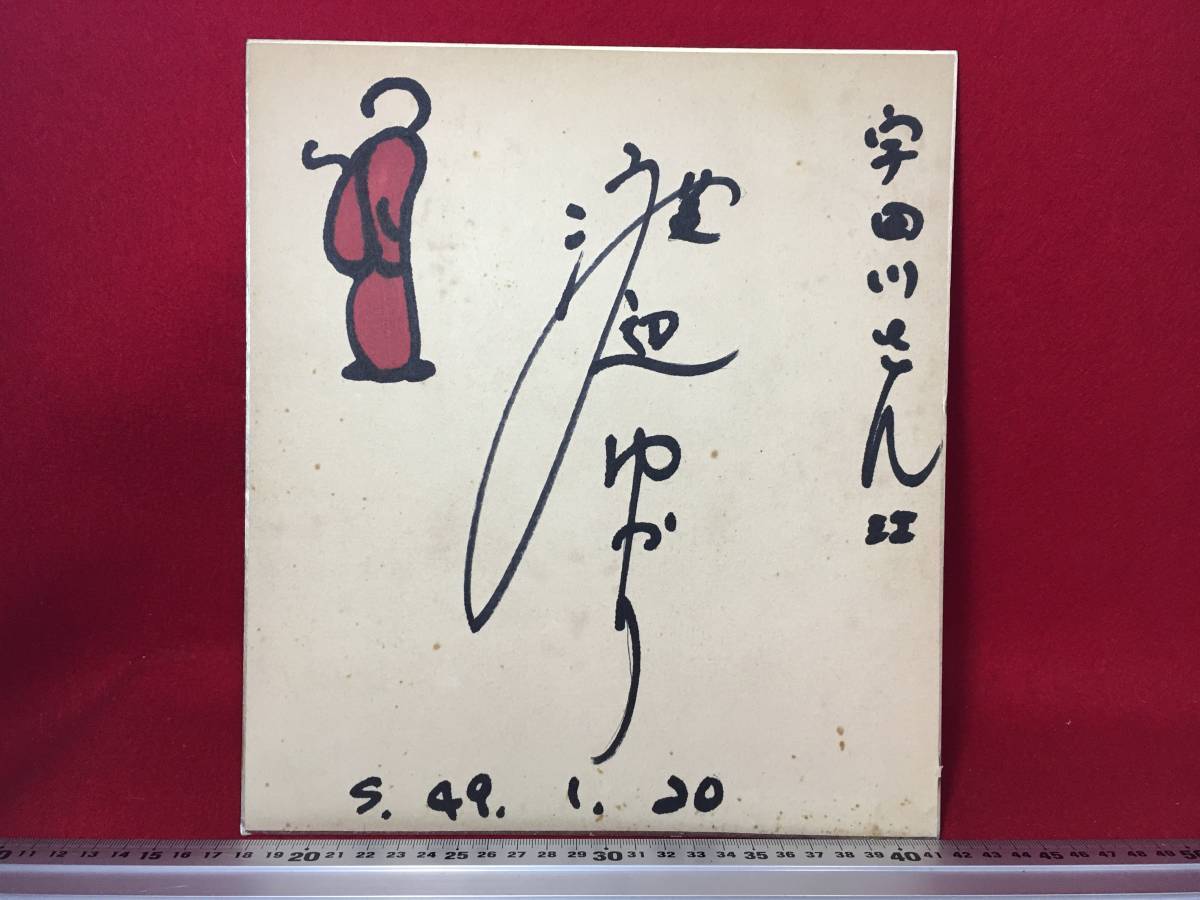 宇田川さん江
渡辺ゆかり
S. 49. 1. 20
10 11 12 13 14 15 16 17 18 19 20 21 22 23 24 25 26 27 28 29 30 31 32 33 34 35 36 37 38 39 40 41 42 43 44 45 46 47 48 49 50